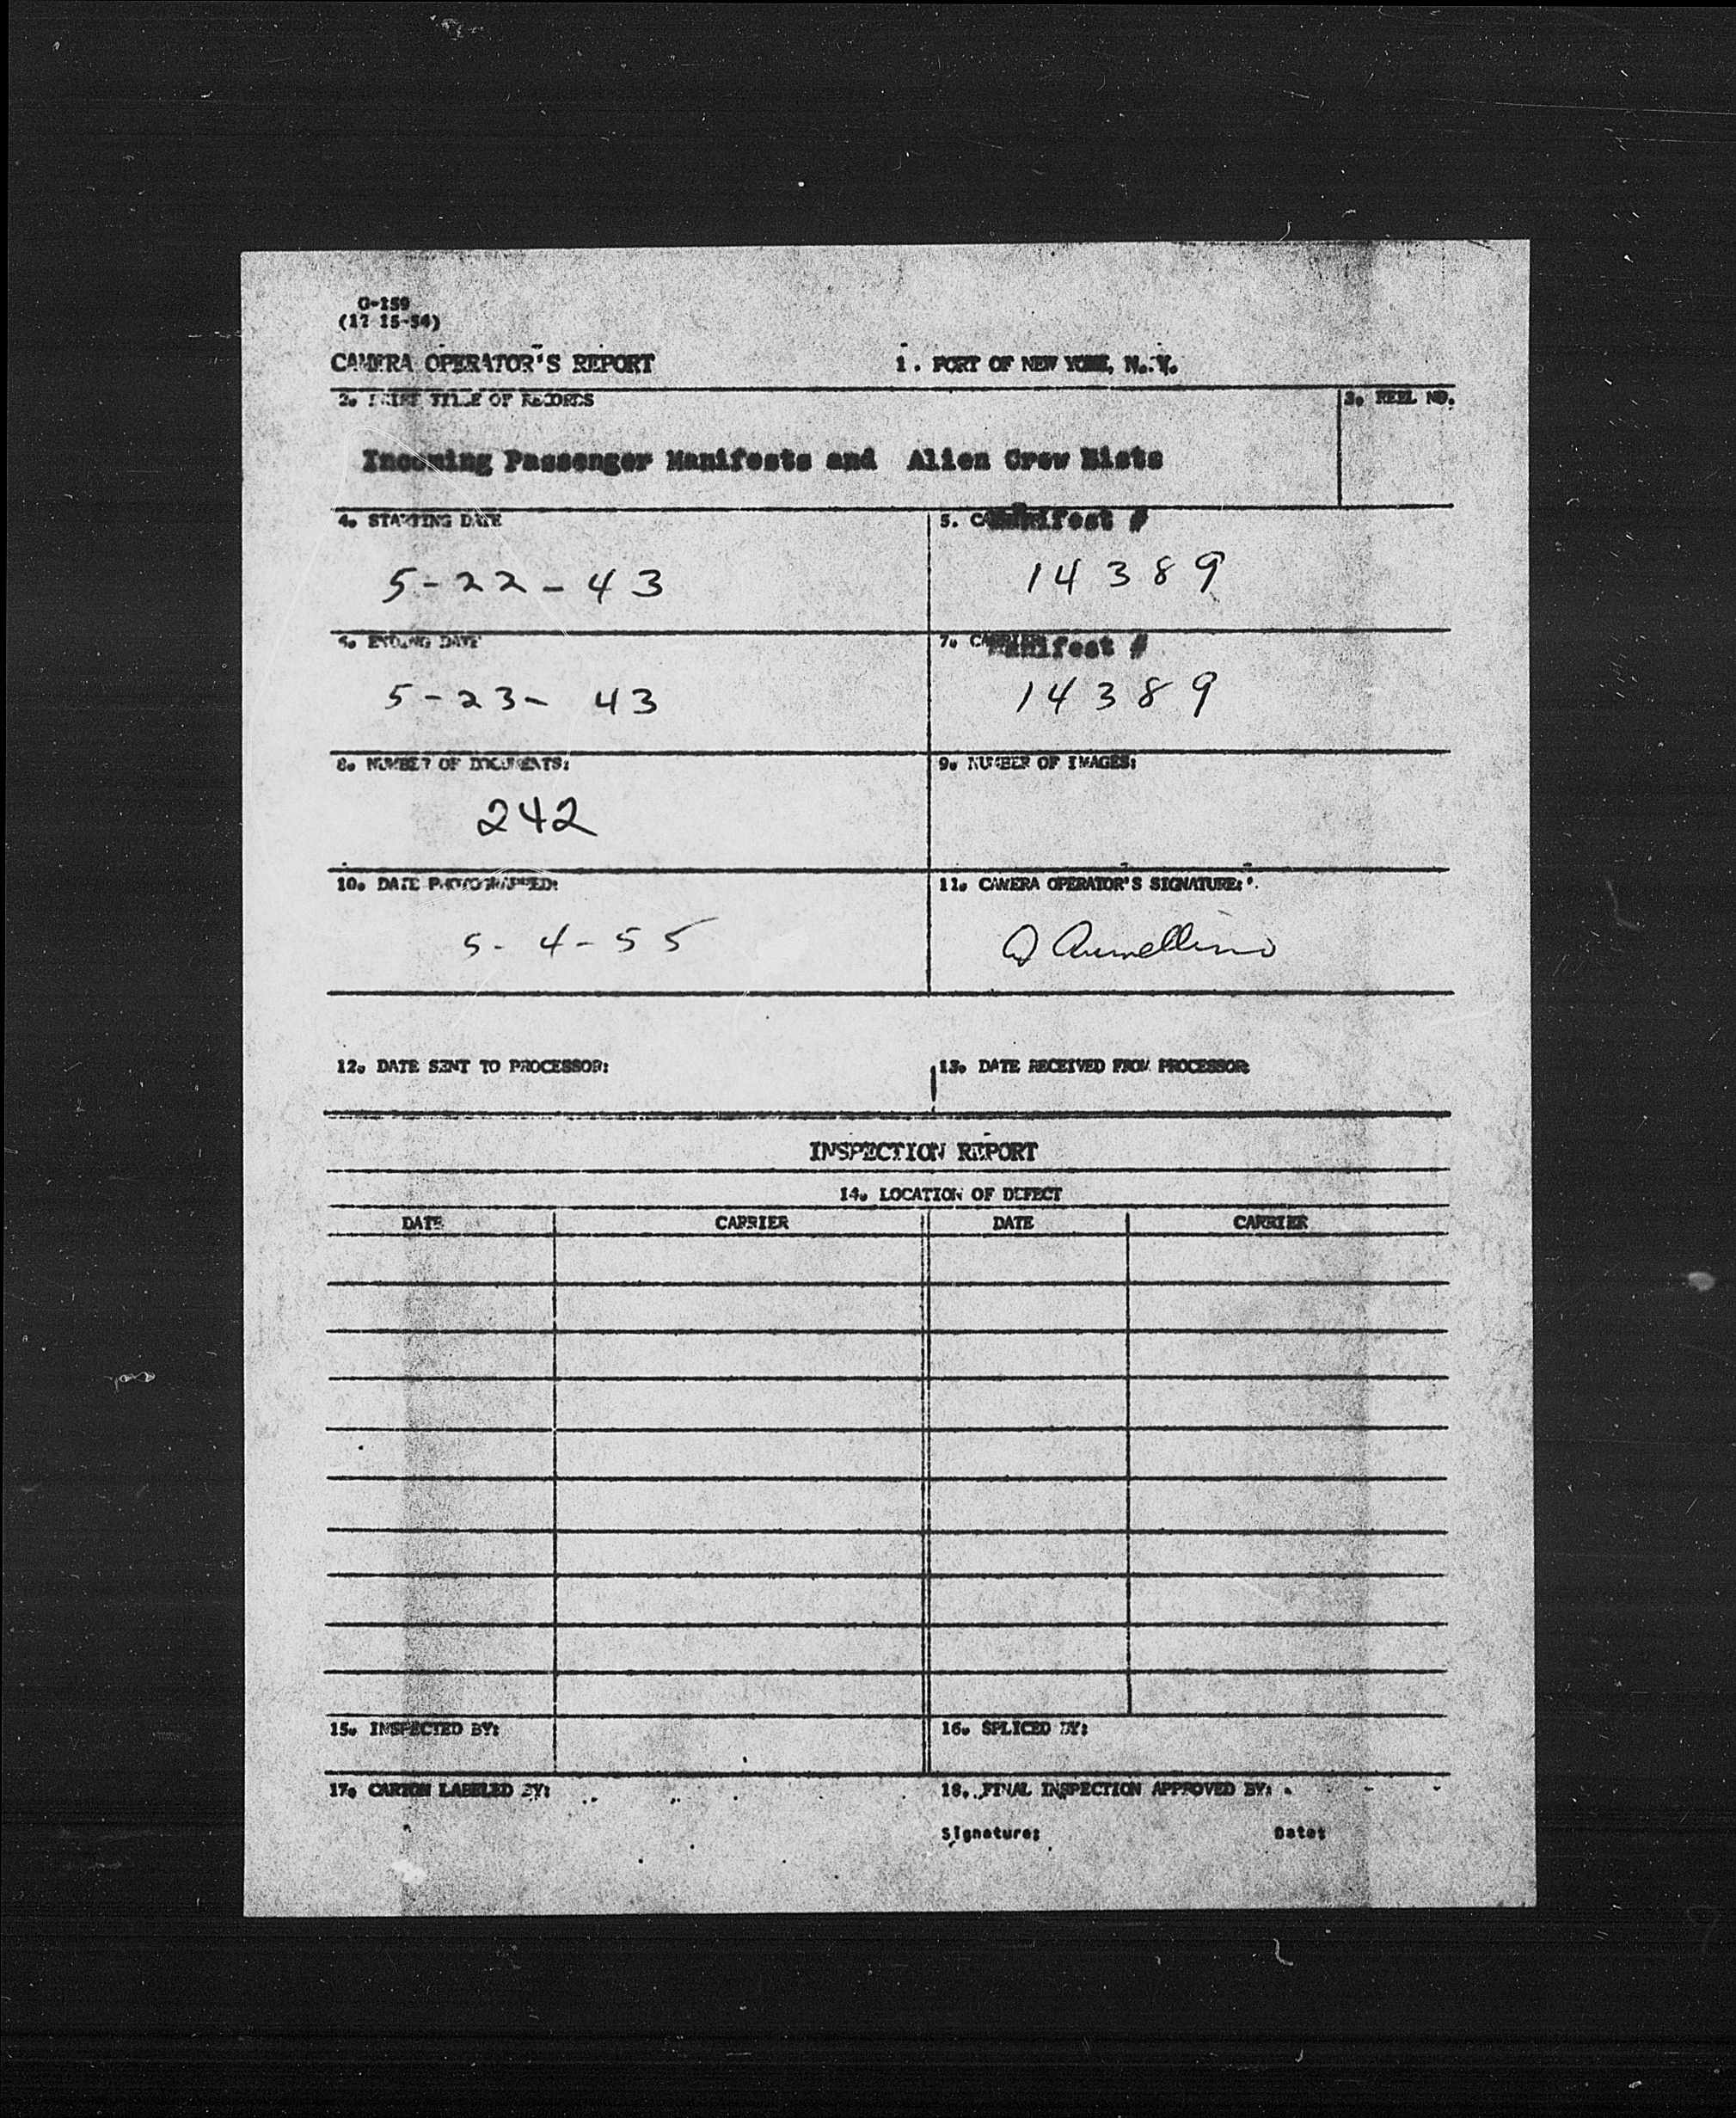 G-159
(12 15-54)
CAMERA OPERATOR'S REPORT 1. PORT OF NEW YORK, N.Y.
2. TITLE OF RECORDS 3. REEL NO.
Incoming Passenger Manifests and Alien Crew Lists
4. STARTING DATE 5. Manifest #
5-22-43 14389
6. ENDING DATE 7. CARRIER Manifest #
5-23-43 14389
8. NUMBER OF DOCUMENTS: 9. NUMBER OF IMAGES:
242
10. DATE PHOTOGRAPHED: 11. CAMERA OPERATOR'S SIGNATURE:
5-4-55
12. DATE SENT TO PROCESSOR: 13. DATE RECEIVED FROM PROCESSOR
INSPECTION REPORT
14. LOCATION OF DEFECT
DATE CARRIER DATE CARRIER
15. INSPECTED BY: 16. SPLICED BY:
17. CARTON LABELED BY: 18. FINAL INSPECTION APPROVED BY:
Signature: Date: